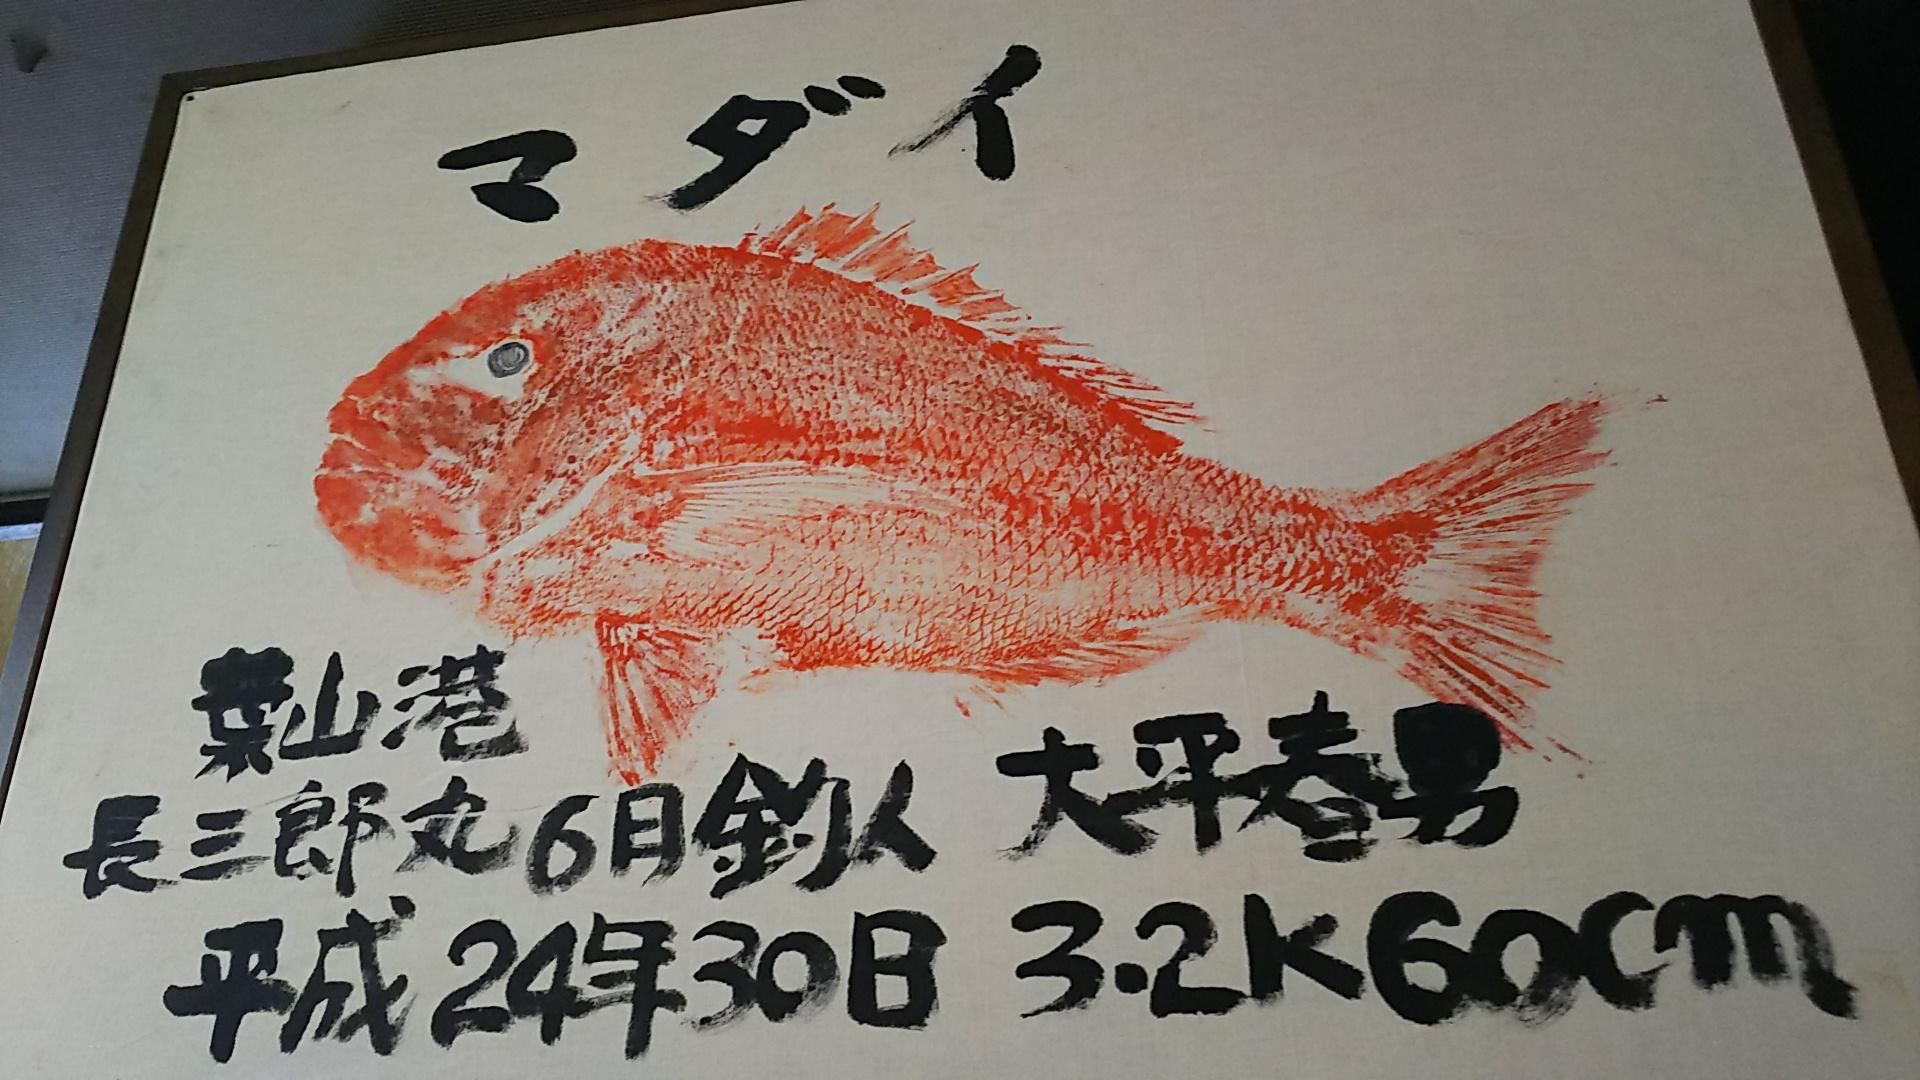 マダイ
葉山港
長三郎丸6月釣人 大平春男
平成24年30日 3.2K60cm